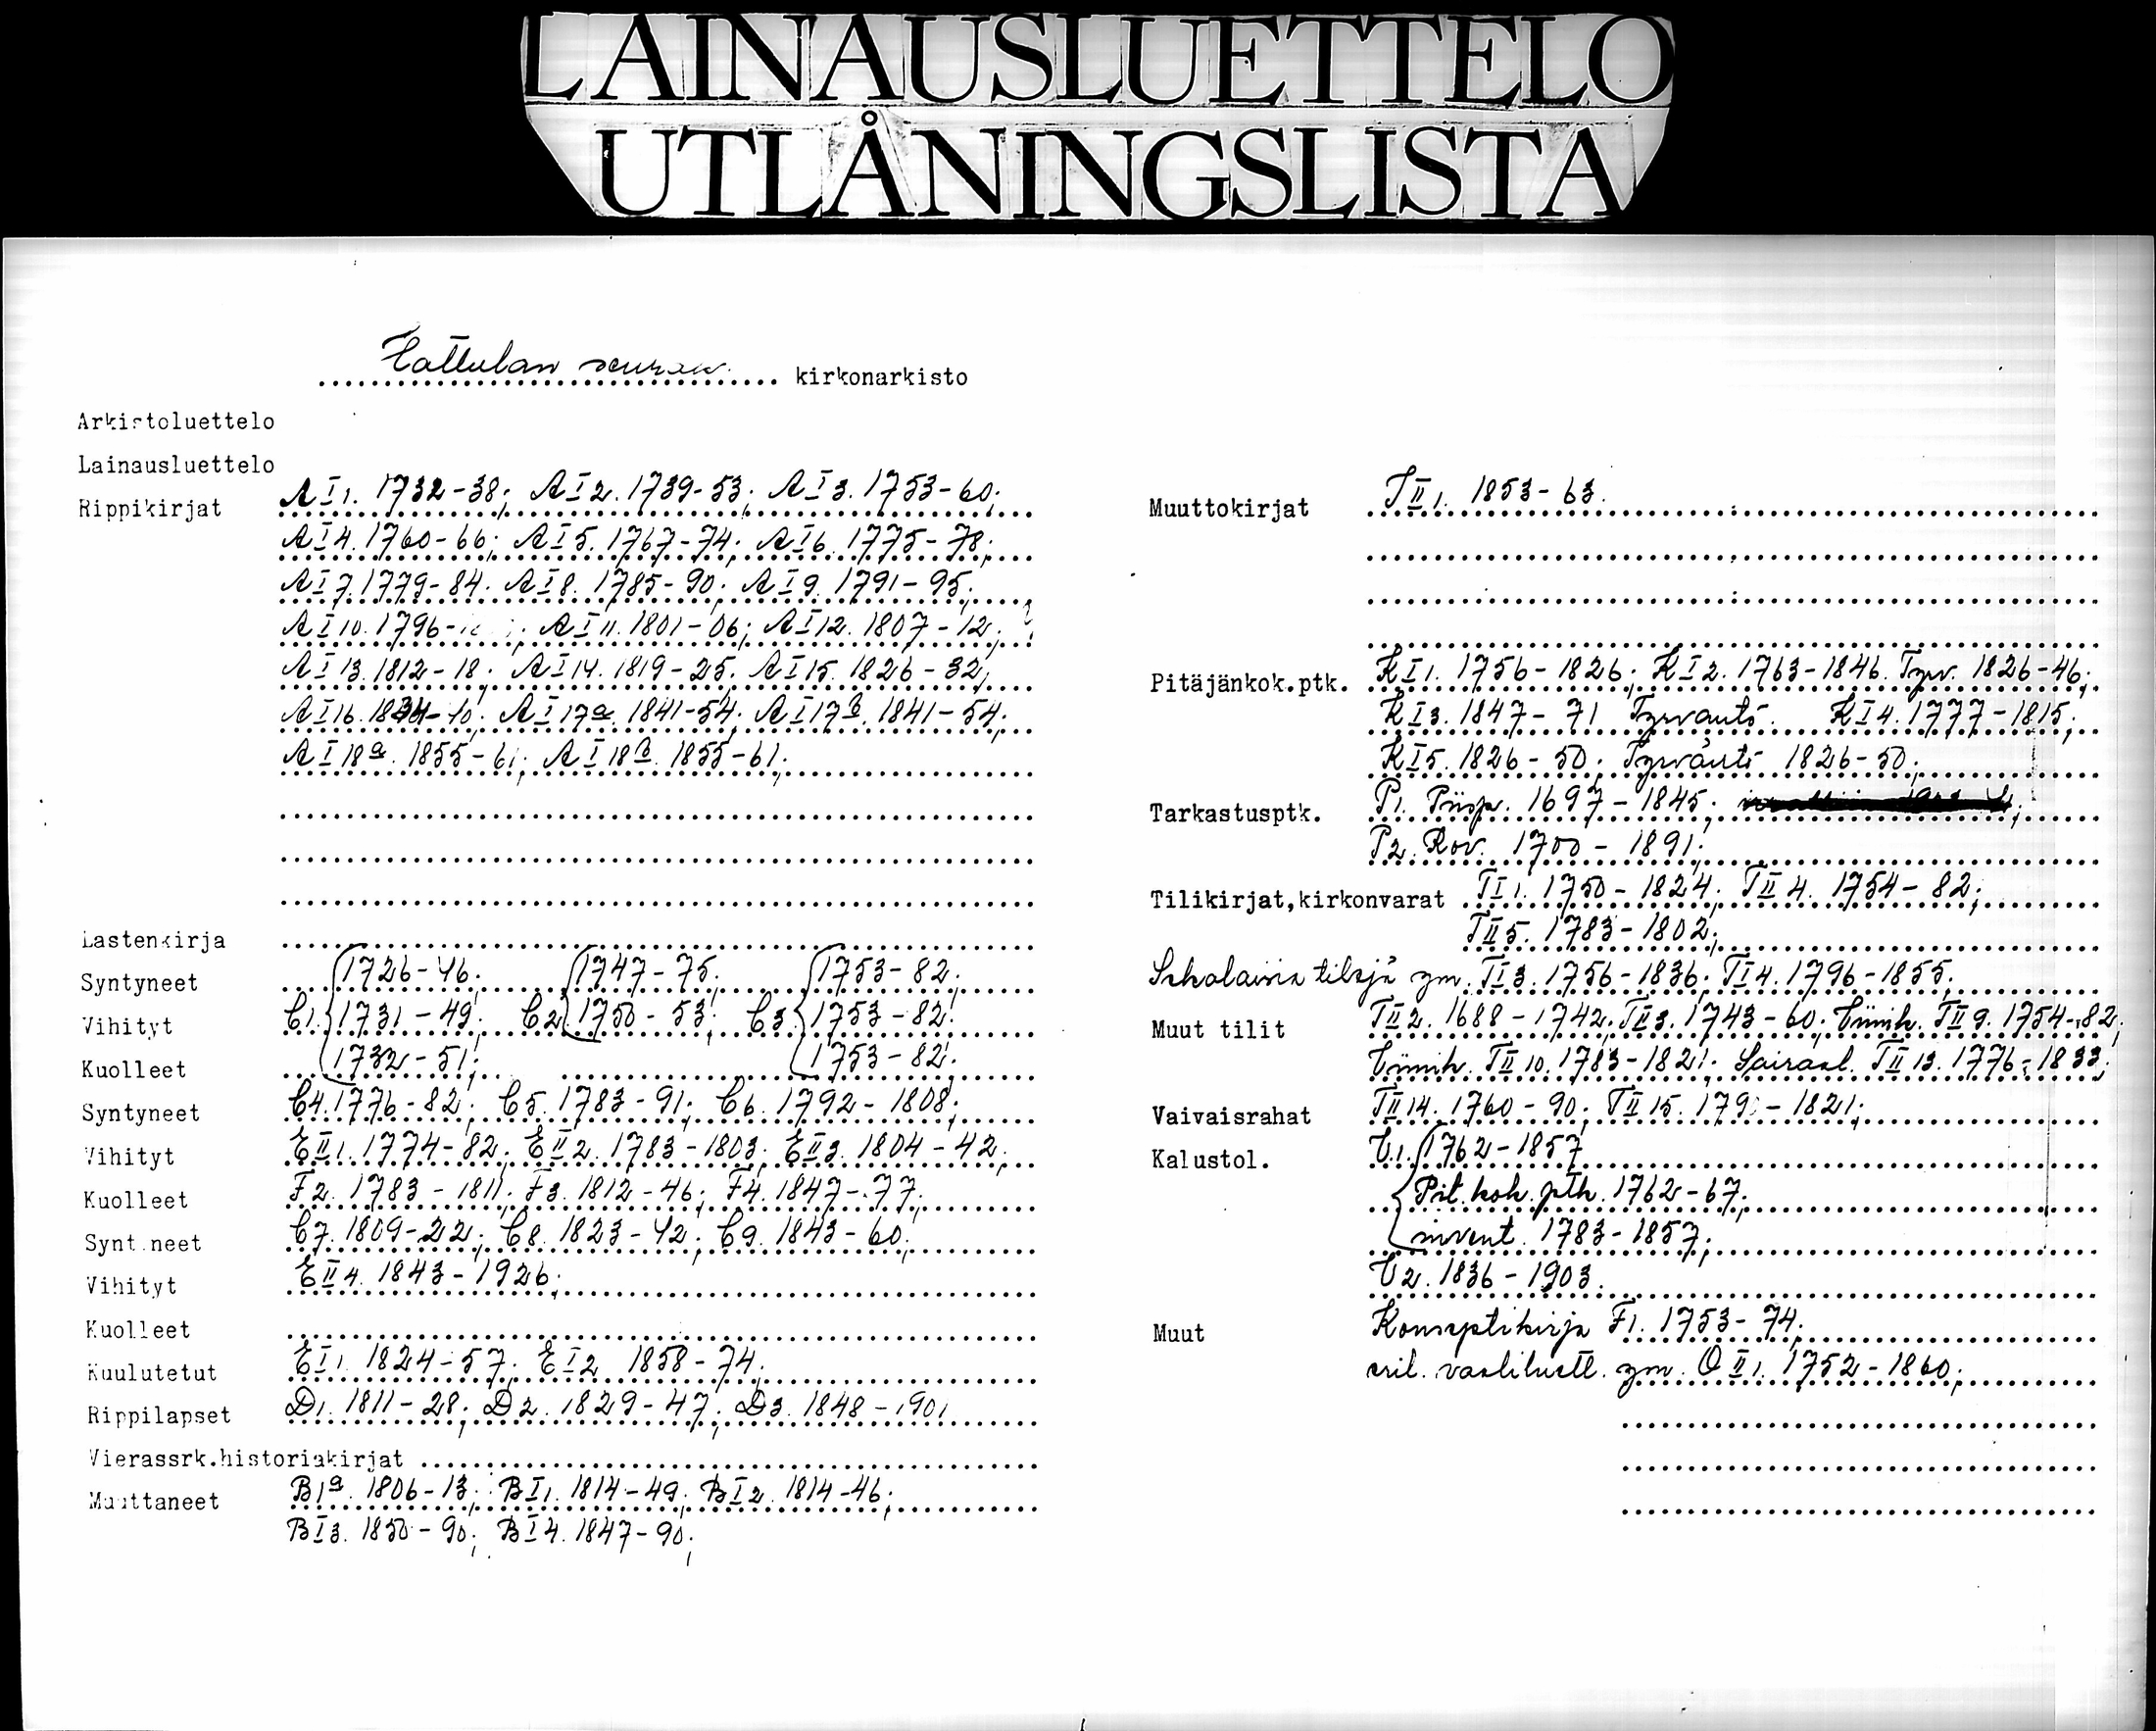 LAINAUSLUETTELO
UTLÅNINGSLISTA
Hattulan seurak. kirkonarkisto
Arkistoluettelo
Lainausluettelo
Rippikirjat A I 1. 1732-38; A I 2. 1739-53; A I 3. 1753-60;
A I 4. 1760-66; A I 5. 1767-74; A I 6. 1775-78;
A I 7. 1779-84; A I 8. 1785-90; A I 9. 1791-95;
A I 10. 1796- ; A I 11. 1801-06; A I 12. 1807-12;
A I 13. 1812-18; A I 14. 1819-25; A I 15. 1826-32;
A I 16. 1834-40; A I 17a. 1841-54; A I 17b. 1841-54;
A I 18a. 1855-61; A I 18b. 1855-61;
Lastenkirja
Syntyneet 1726-46; 1747-75; 1753-82;
Vihityt C1. 1731-49; C2 1750-53; C3 1753-82;
Kuolleet 1732-51; 1753-82;
Syntyneet C4. 1776-82; C5. 1783-91; C6. 1792-1808;
Vihityt E II 1. 1774-82; E II 2. 1783-1803; E II 3. 1804-42;
Kuolleet F2. 1783-1811; F3. 1812-46; F4. 1847-77;
Syntyneet C7. 1809-22; C8. 1823-42; C9. 1843-60;
Vihityt E II 4. 1843-1926;
Kuolleet
Kuulutetut E I 1. 1824-57; E I 2 1858-74;
Rippilapset D1. 1811-28; D2. 1829-47; D3. 1848-1901
Vierassrk.historiakirjat
Muuttaneet B1a. 1806-13; B I 1. 1814-49; B I 2. 1814-46;
B I 3. 1850-90; B I 4. 1847-90;
Muuttokirjat J II 1. 1853-63.
Pitäjänkok.ptk. K I 1. 1756-1826; K I 2. 1763-1846. Tyrv. 1826-46;
K I 3. 1847-71 Tyrväntö. K I 4. 1777-1815;
K I 5. 1826-50; Tyrväntö 1826-50;
Tarkastusptk. P1. Piisp. 1697-1845;
P2. Rov. 1700-1891;
Tilikirjat,kirkonvarat T I 1. 1750-1824; T II 4. 1754-82;
T II 5. 1783-1802;
Sekalaisia tilejä ym. T I 3. 1756-1836; T I 4. 1796-1855;
Muut tilit T II 2. 1688-1742; T II 3. 1743-60; T II 9. 1754-82;
T II 10. 1783-1821; Sairaal. T II 13. 1776-1833;
Vaivaisrahat T II 14. 1760-90; T II 15. - 1821;
Kalustol. U1. 1762-1857
Pit.kok.ptk. 1762-67;
invent. 1783-1857;
U2. 1836-1903.
Muut Konseptikirja F1. 1753-74;
eril. vaaliluett. ym. O II 1. 1752-1860;